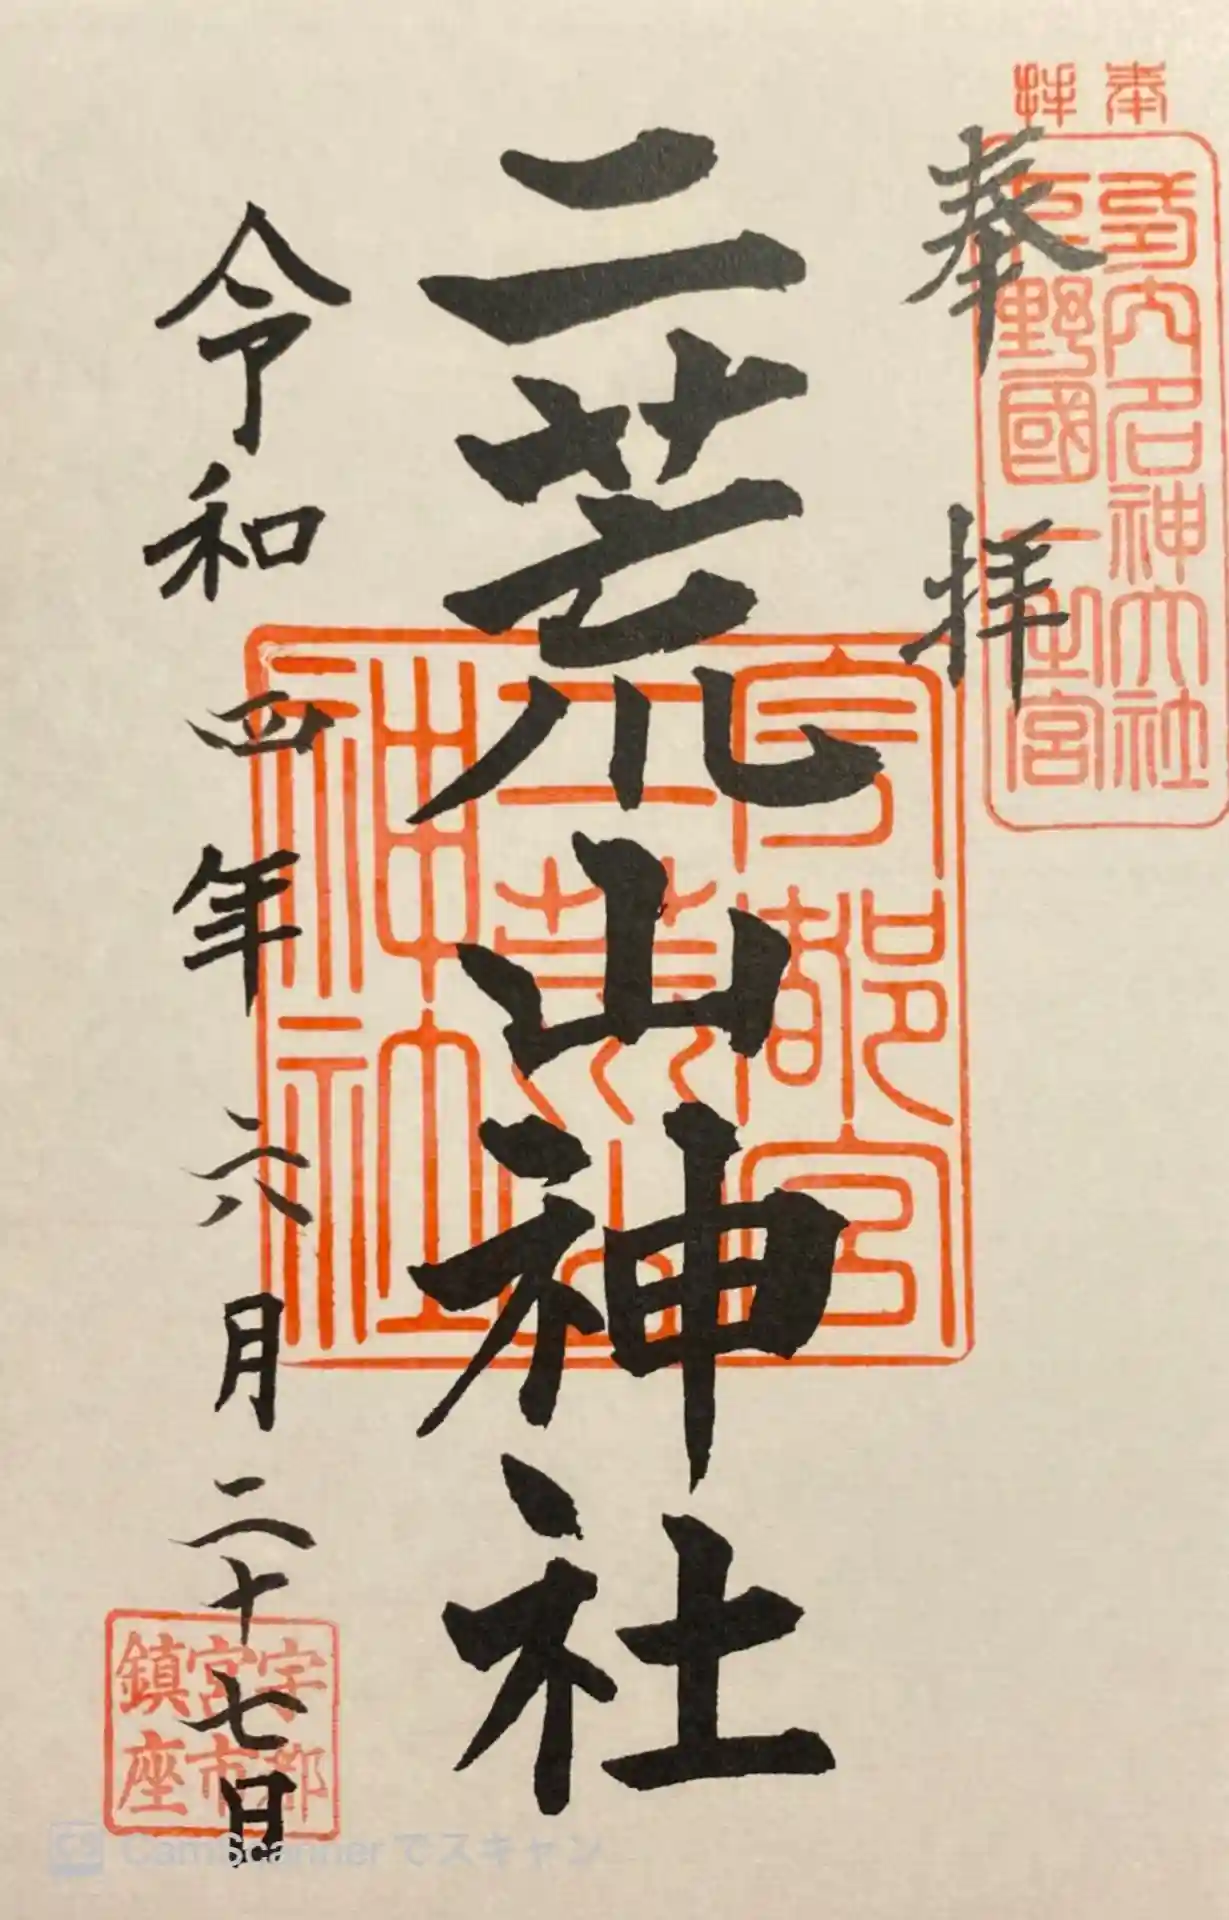 奉拝
式内名神大社
下野國一之宮
奉拝
二荒山神社
宇都宮
二荒山
神社
令和四年六月二十七日
宇都
宮市
鎮座
CamScannerでスキャン